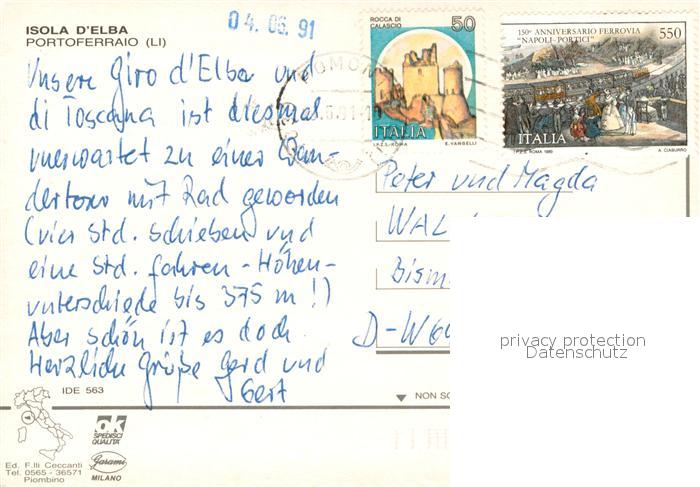 04.06.91
ISOLA D'ELBA
PORTOFERRAIO (LI)
ROCCA DI CALASCIO
50
ITALIA
I.P.Z.S. - ROMA E. VANGELLI
150° ANNIVERSARIO FERROVIA
"NAPOLI-PORTICI"
550
ITALIA
I.P.Z.S. ROMA 1989 A. CIABURRO
Unsere Giro d'Elba und
di Toscana ist diesmal
unerwartet zu einer Wan-
dertour mit Rad geworden
(vier Std. schieben und
eine Std. fahren - Höhen-
unterschiede bis 375 m!)
Aber schön ist es doch.
Herzliche Grüße Gerd und
Gert
Peter und Magda
WAL
Bism
D-W
privacy protection
Datenschutz
IDE 563
NON SC
ok
SPEDISCI
QUALITA'
Garami
MILANO
Ed. F.lli Ceccanti
Tel. 0565 - 36571
Piombino